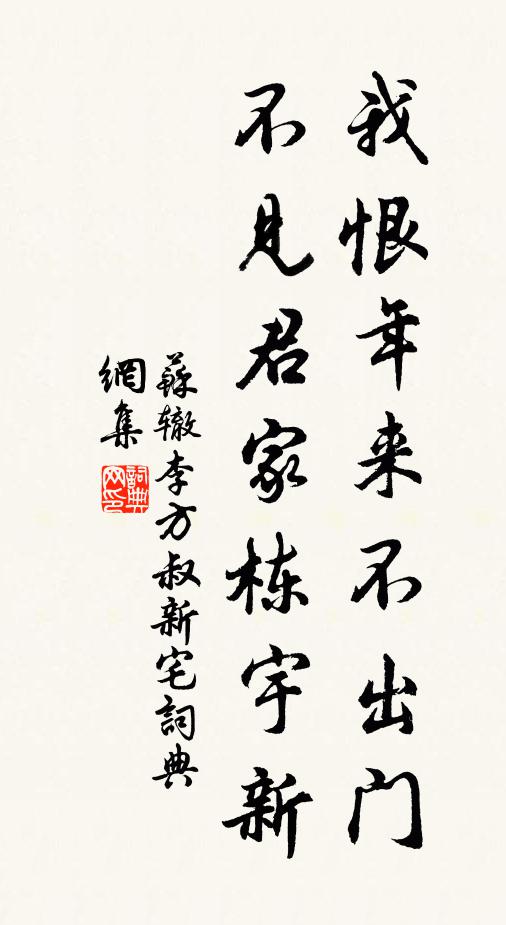 我恨年来不出门
不见君家栋宇新
蘇辙李方叔新宅詞典
網集
詞典网印